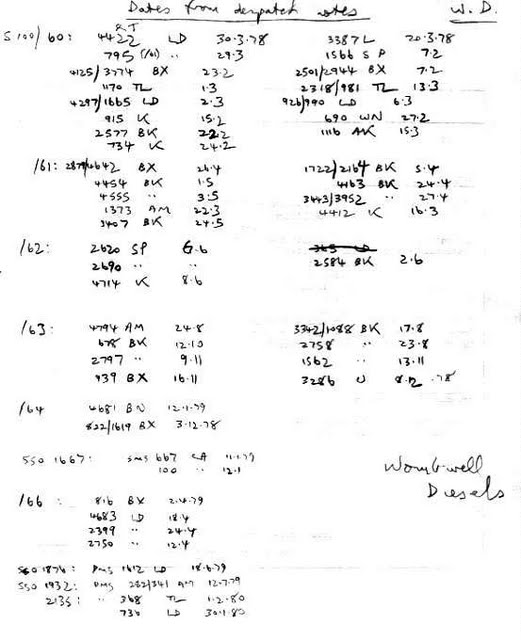 Dates from despatch notes W.D.
RT
S 100/60: 4422 LD 30.3.78 3387 L 20.3.78
795 (/61) " 29.3 1566 SP 7.2
4125/3774 BX 23.2 2501/2944 BX 7.2
1170 TL 1.3 2318/981 TL 13.3
4297/1665 LD 2.3 926/990 LD 6.3
915 K 15.2 690 WN 27.2
2577 BK 22.2 1116 AK 15.3
734 K 24.2
/61: 2879/4642 BX 26.4 1722/2164 BK 5.4
4454 BK 1.5 4163 BK 24.4
4555 " 3.5 3443/3952 " 27.4
1373 AM 22.3 4412 K 16.3
3407 BK 24.5
/62: 2620 SP 6.6
2690 " " 2584 BK 2.6
4714 K 8.6
/63: 4794 AM 24.8 3342/1088 BK 17.8
678 BK 12.10 2758 " 23.8
2797 " 9.11 1562 " 13.11
939 BX 16.11 3286 U 8.12.78
/64 4681 BN 12.1.79
822/1619 BX 3.12.78
SSO 1667: SMS 667 CA 11.1.79
100 " 12.1
Wombwell
Diesels
/66: 816 BX 2.4.79
4683 LD 18.4
2399 " 24.4
2750 " 12.4
SSO 1876: DMS 1612 LD 18.6.79
SSO 1932: DMS 282/341 AM 12.7.79
2135: " 368 TL 1.2.80
730 LD 30.1.80